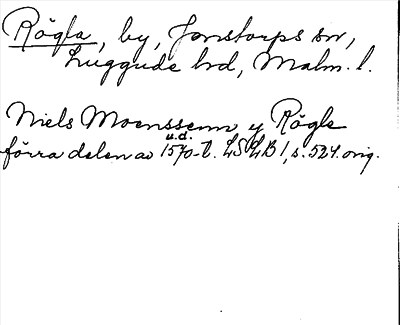 Rögla, by, Jonstorps sn,
Luggude hd, Malm. l.
Niels Moenssenn y Rögle
u.d.
förra delen av 1570-t. LSLB 1, s. 524. orig.